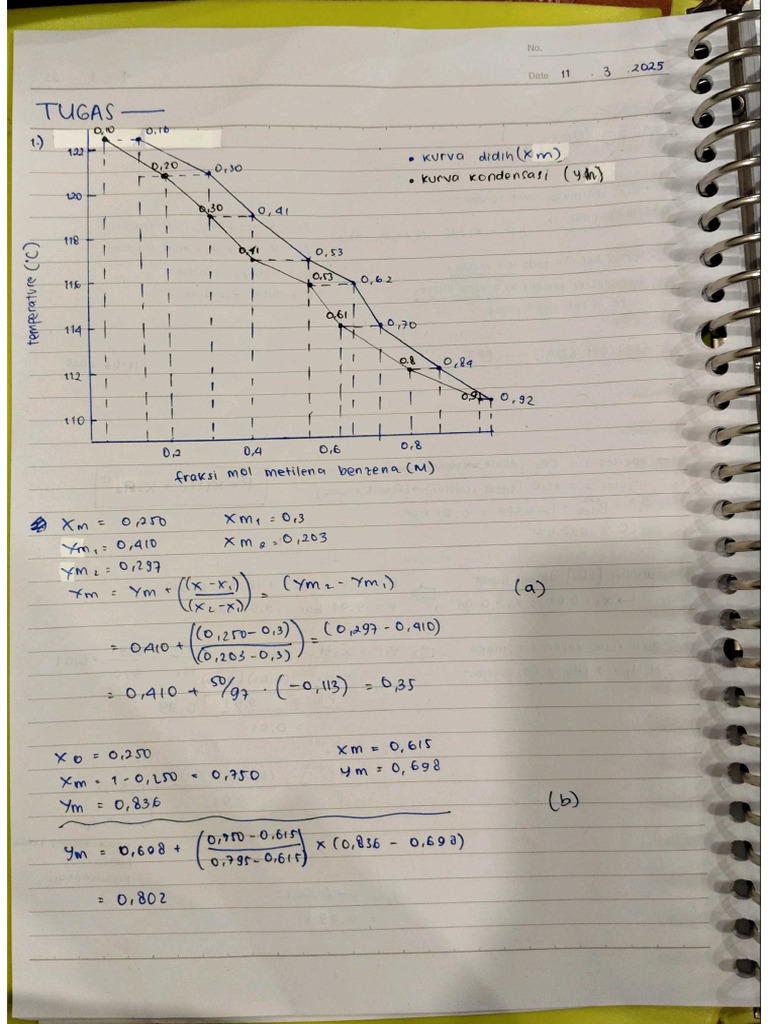 No.
Date 11 . 3 . 2025
TUGAS —
1.)
0,10 0,16
122
0,20 0,30
• kurva didih (xm)
• kurva kondensasi (ym)
120
0,30 0,41
118
0,41 0,53
116
0,53 0,62
114
0,61 0,70
112
0,8 0,84
110
0,9 0,92
temperature (°C)
0,2 0,4 0,6 0,8
fraksi mol metilena benzena (M)
Xm = 0,250 Xm₁ = 0,3
Ym₁ = 0,410 Xm₂ = 0,203
Ym₂ = 0,297
Ym = Ym + ((x - x₁)/(x₂ - x₁)) = (Ym₂ - Ym₁) (a)
= 0,410 + ((0,250 - 0,3)/(0,203 - 0,3)) = (0,297 - 0,410)
= 0,410 + 50/97 . (-0,113) = 0,35
X0 = 0,250 Xm = 0,615
Xm = 1 - 0,250 = 0,750 Ym = 0,698
Ym = 0,836 (b)
Ym = 0,698 + ((0,750 - 0,615)/(0,795 - 0,615)) × (0,836 - 0,698)
= 0,802